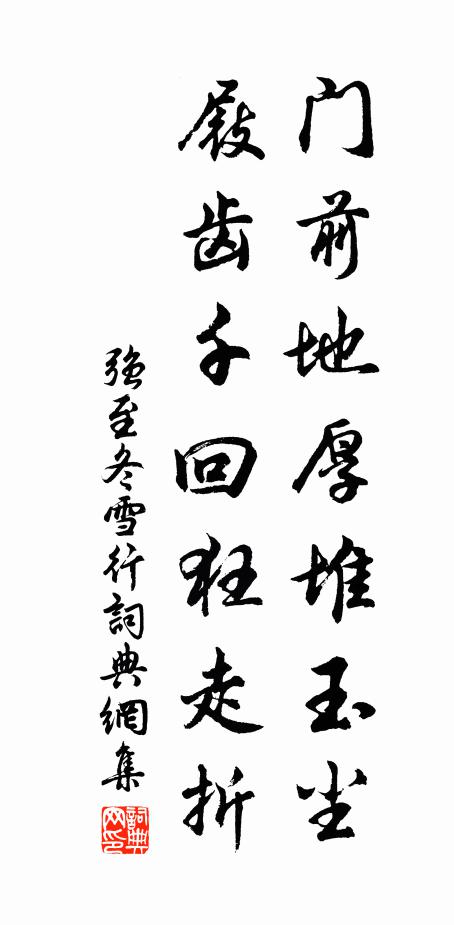 门前地厚堆玉尘
屐齿千回狂走折
强至冬雪行詞典網集
詞典网印